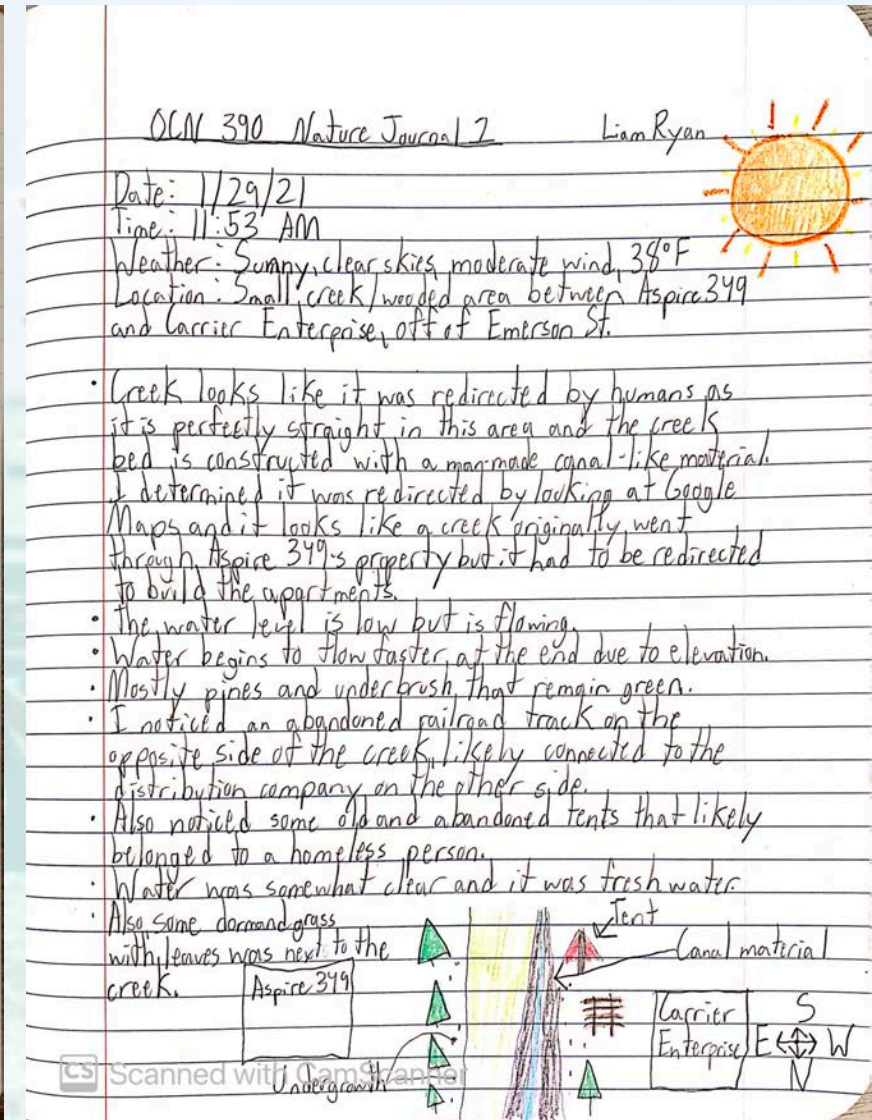 OCN 390 Nature Journal 2 Liam Ryan
Date: 1/29/21
Time: 11:53 AM
Weather: Sunny, clear skies, moderate wind, 38°F
Location: Small creek/wooded area between Aspire 349
and Carrier Enterprise, off of Emerson St.
• Creek looks like it was redirected by humans as
it is perfectly straight in this area and the creek
bed is constructed with a man-made canal-like material.
I determined it was redirected by looking at Google
Maps and it looks like a creek originally went
through Aspire 349's property but it had to be redirected
to build the apartments.
• The water level is low but is flowing.
• Water begins to flow faster at the end due to elevation.
• Mostly pines and underbrush that remain green.
• I noticed an abandoned railroad track on the
opposite side of the creek, likely connected to the
distribution company on the other side.
• Also noticed some old and abandoned tents that likely
belonged to a homeless person.
• Water was somewhat clear and it was fresh water.
• Also some dormand grass
with leaves was next to the
creek.
Tent
Canal material
Aspire 349
Carrier
Enterprise
S
E W
N
Undergrowth
CS Scanned with CamScanner